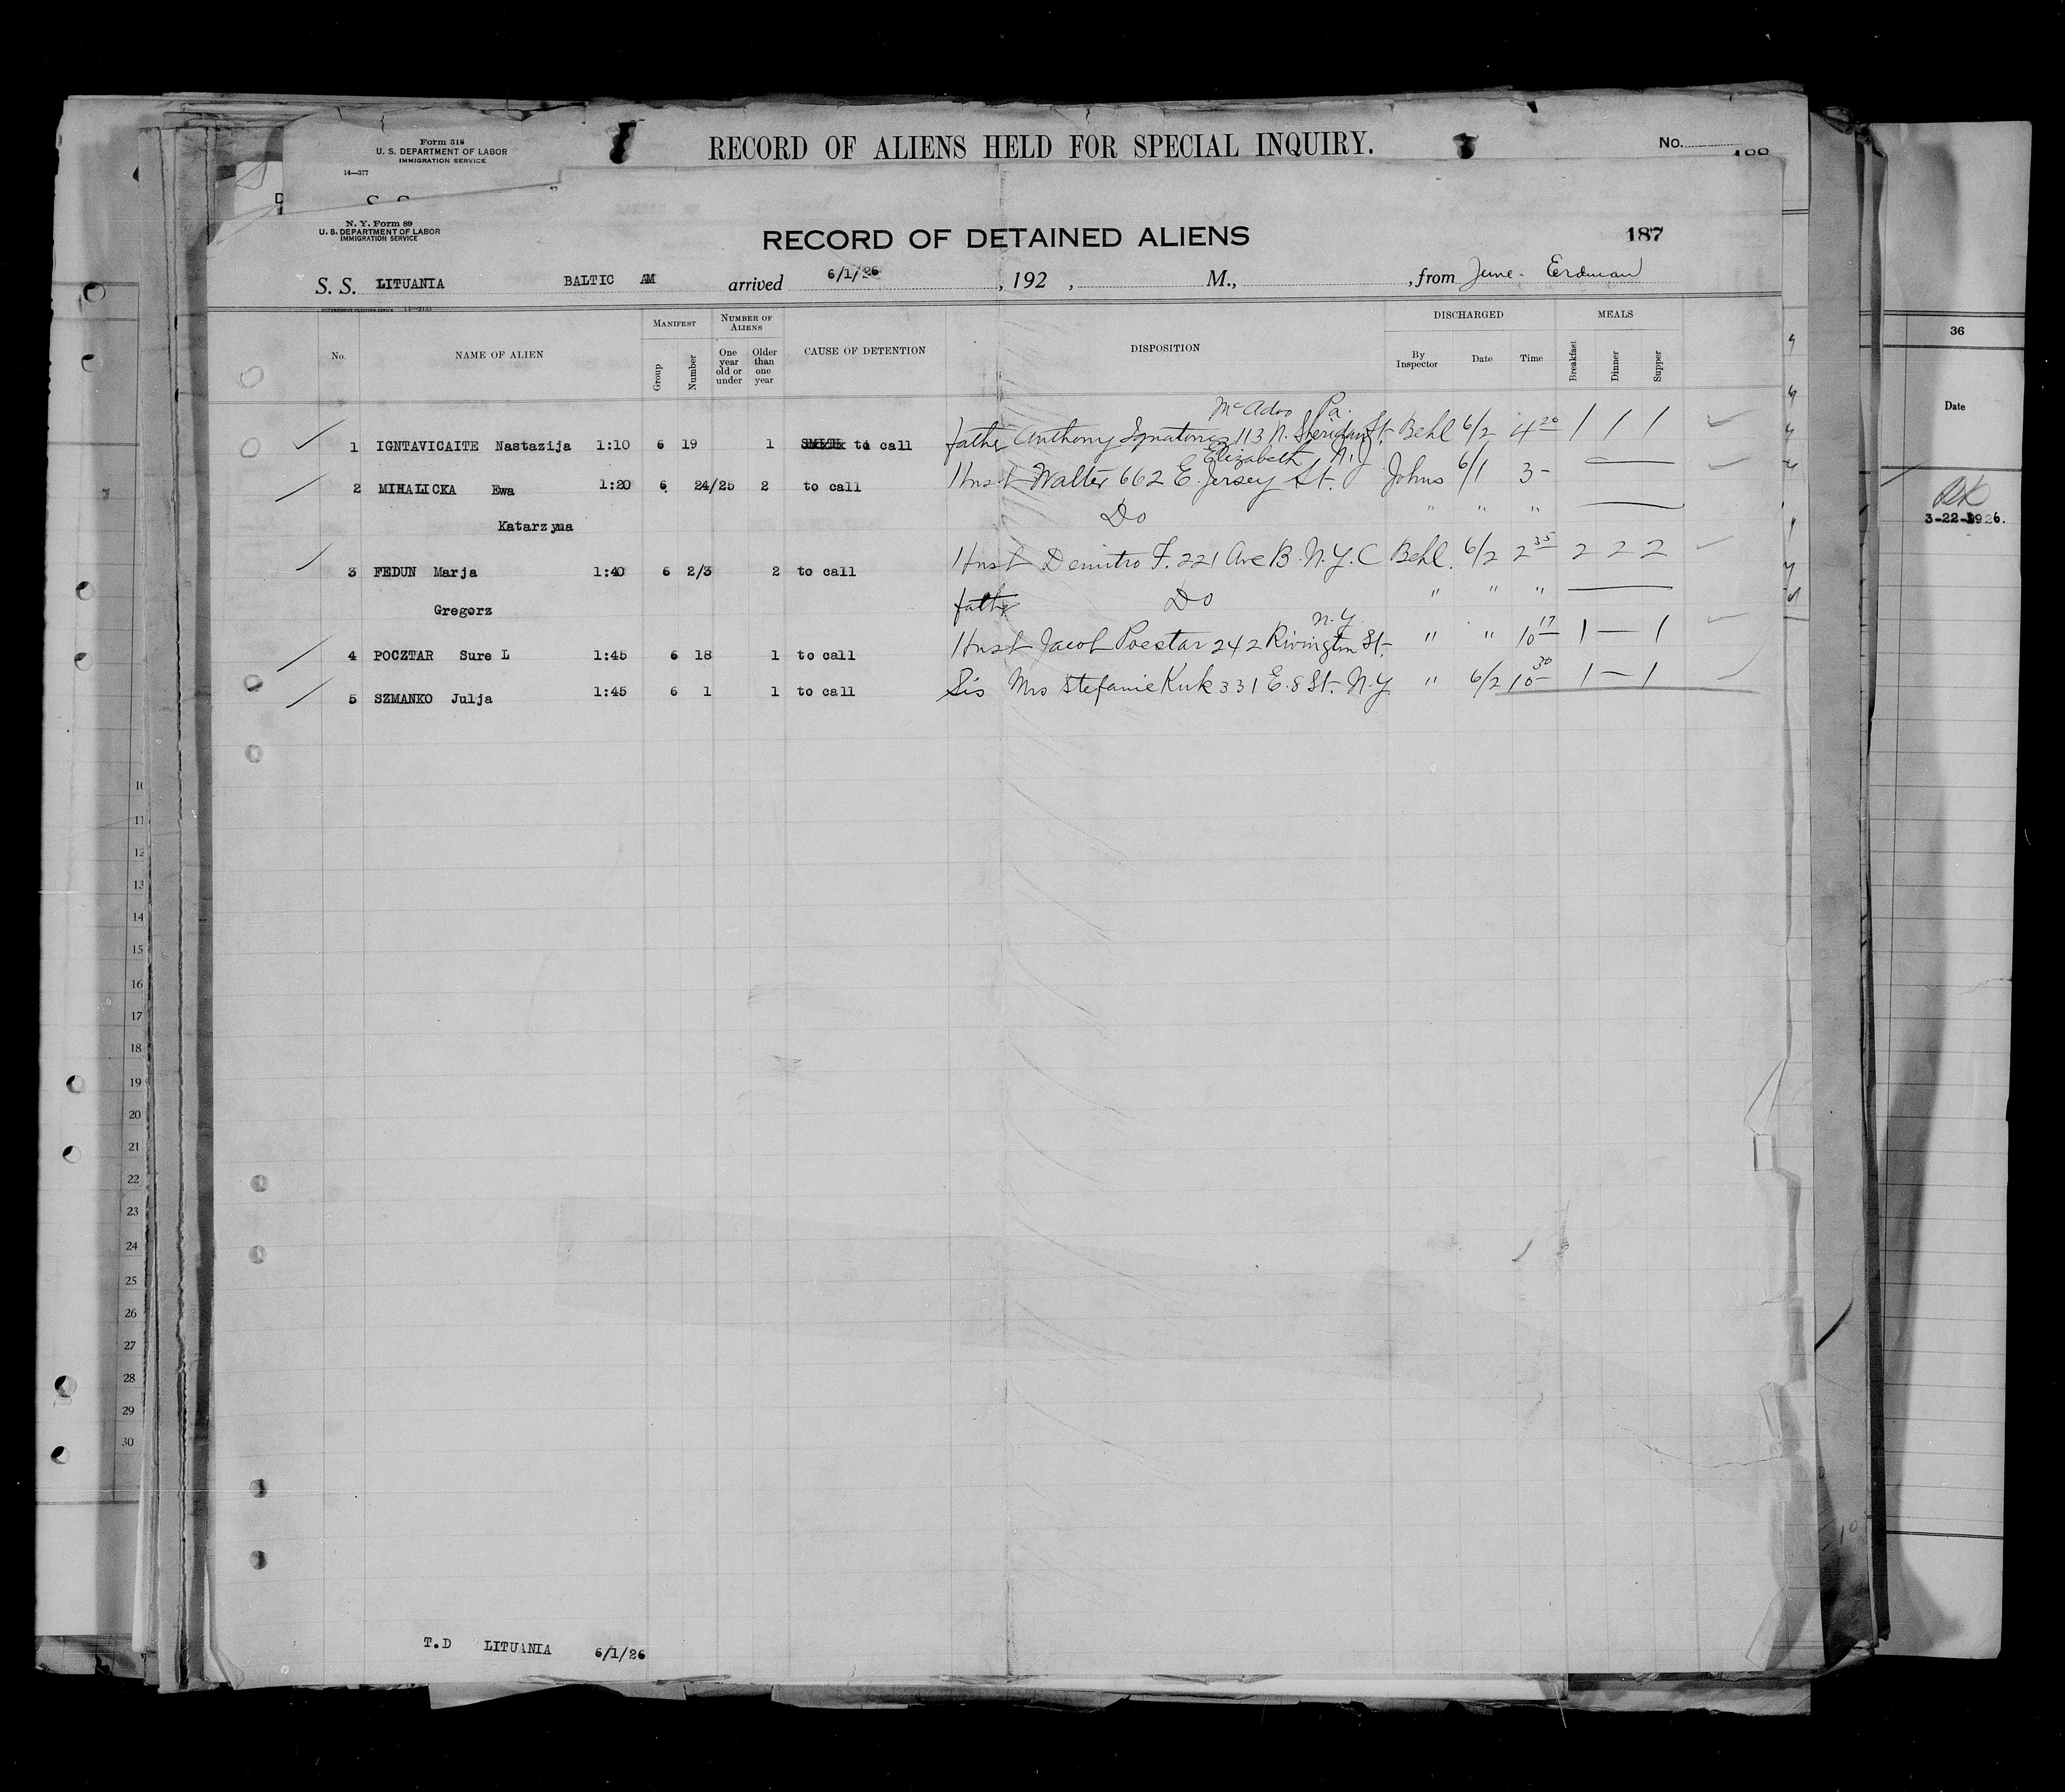 Form 518
U. S. DEPARTMENT OF LABOR
IMMIGRATION SERVICE
14—377
RECORD OF ALIENS HELD FOR SPECIAL INQUIRY.
No.
N. Y. Form 89
U. S. DEPARTMENT OF LABOR
IMMIGRATION SERVICE
RECORD OF DETAINED ALIENS
187
S. S. LITUANIA BALTIC AM arrived 6/1/26 , 192 , M., , from June - Erdman
No. NAME OF ALIEN MANIFEST NUMBER OF ALIENS CAUSE OF DETENTION DISPOSITION DISCHARGED MEALS
Group Number One year old or under Older than one year By Inspector Date Time Breakfast Dinner Supper
McAdoo Pa.
1 IGNTAVICAITE Nastazija 1:10 6 19 1 to call father Anthony 113 N. Sheridan St. Behl 6/2 4 20 1 1 1
Elizabeth N.J
2 MIHALICKA Ewa 1:20 6 24/25 2 to call Hust Walter 662 E. Jersey St. Johns 6/1 3 -
Katarzyna Do " " "
3 FEDUN Marja 1:40 6 2/3 2 to call Hust Demitro F. 221 Ave B. N.Y.C Behl. 6/2 2 35 2 2 2
Gregorz father Do " " "
N.Y.
4 POCZTAR Sure L 1:45 6 18 1 to call Hust Jacob Pocstar 242 Rivington St. " " 10 17 1 — 1
5 SZMANKO Julja 1:45 6 1 1 to call Sis Mrs Stefanie Kuk 331 E. 8 St. N.Y. " 6/2 10 30 1 — 1
T.D LITUANIA 6/1/26
10
11
12
13
14
15
16
17
18
19
20
21
22
23
24
25
26
27
28
29
30
36
Date
3-22-1926.